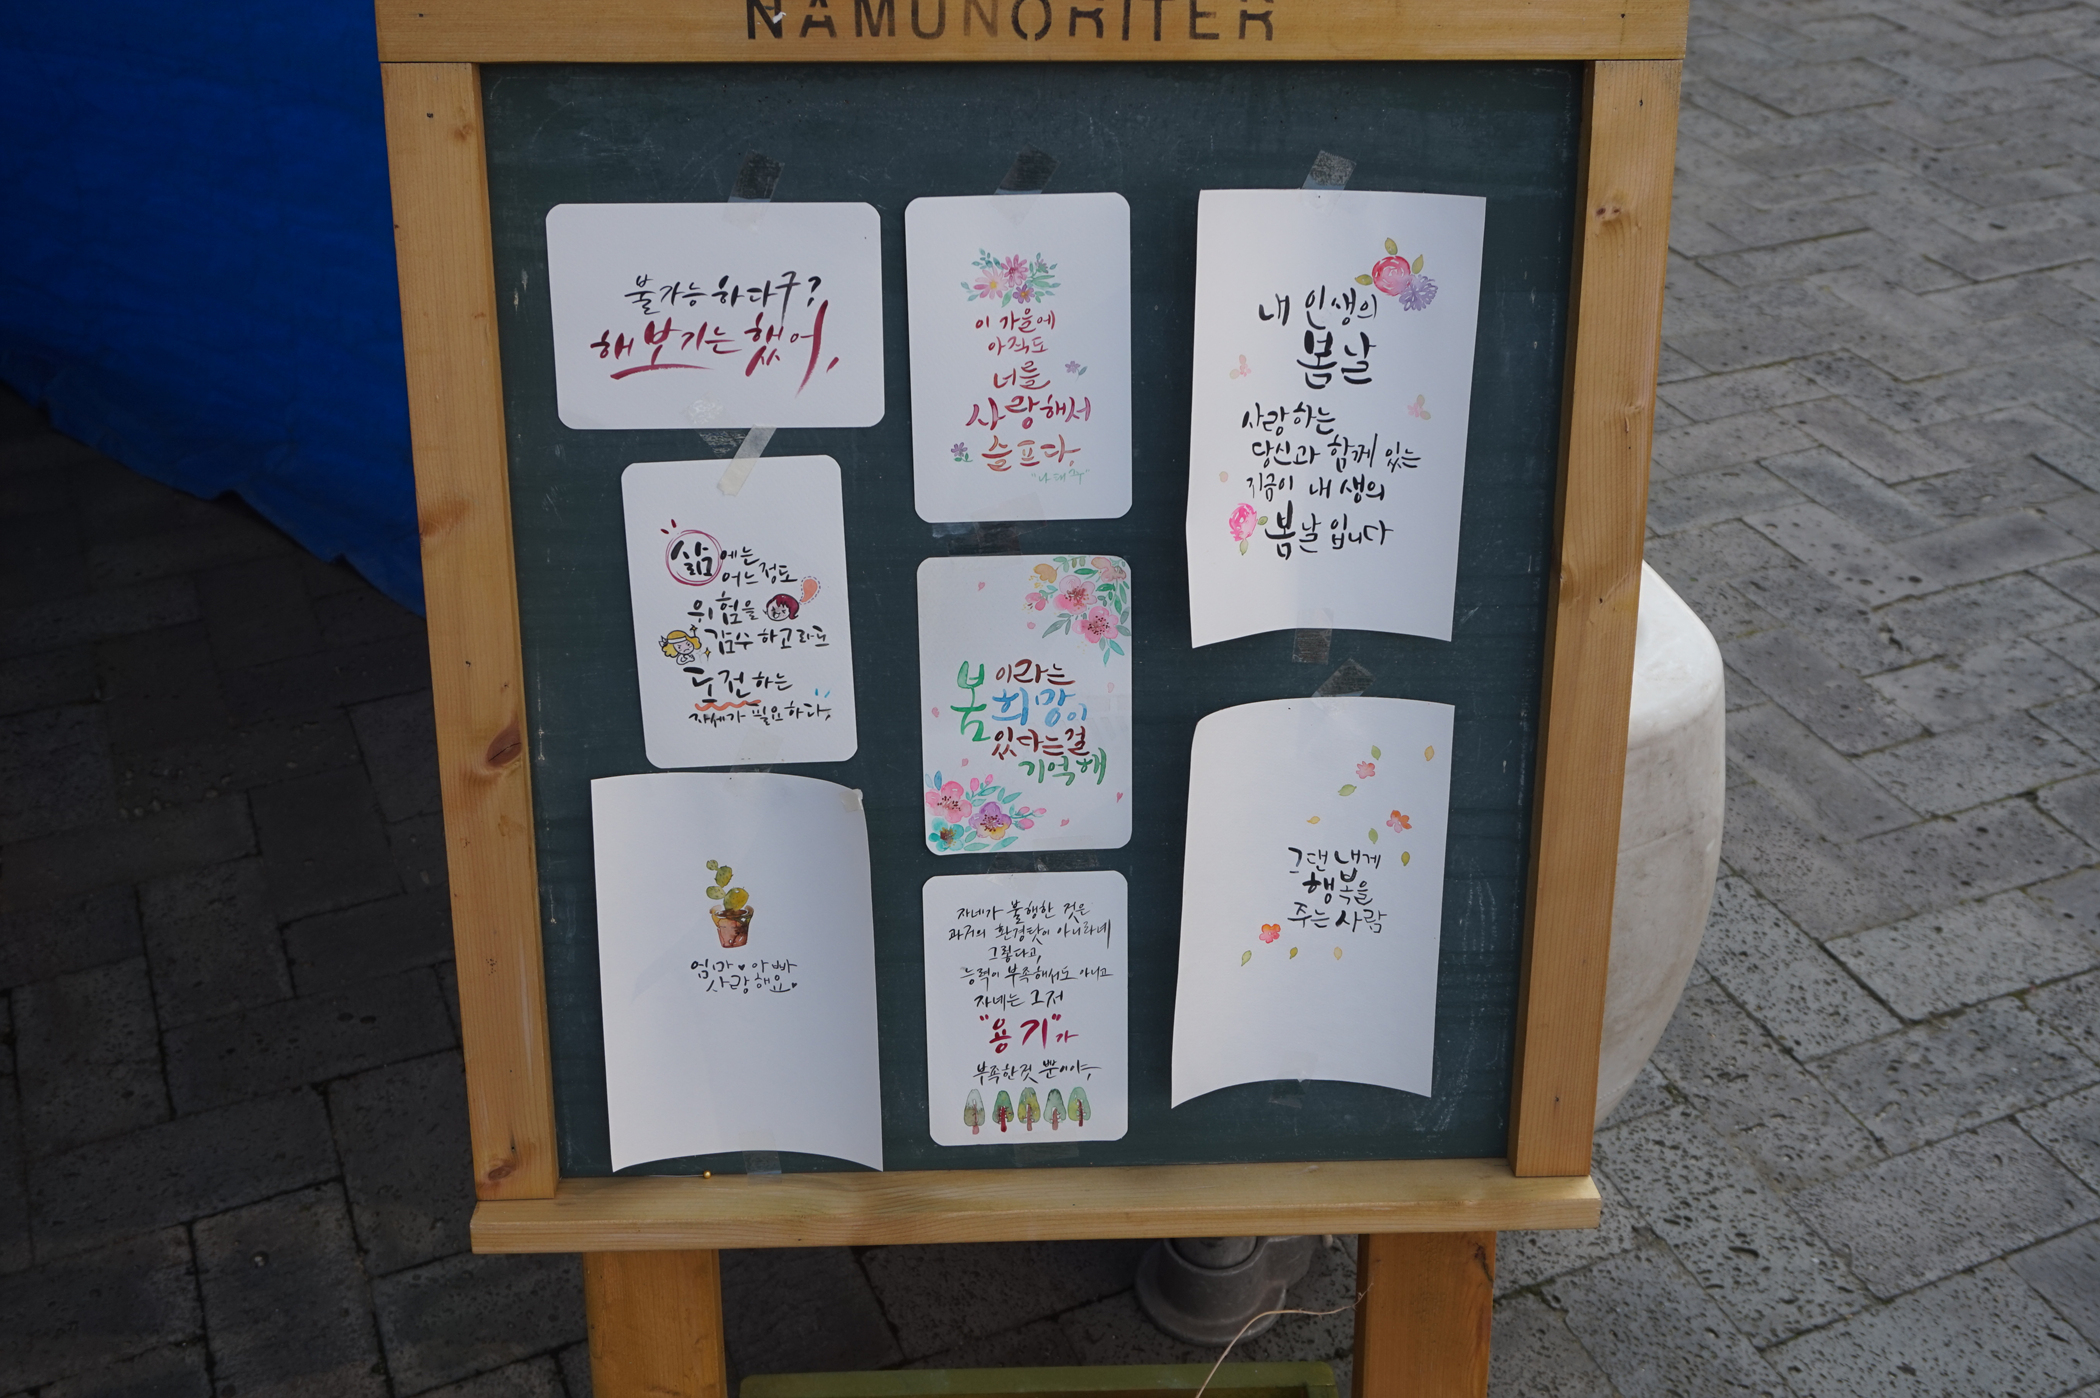 NAMUNORITER
불가능하다구?
해보기는 했어,
삶에는
어느정도
위험을
감수하고라도
도전하는
자세가 필요하다,
엄마♥아빠
사랑해요♥
이 가을에
아직도
너를
사랑해서
슬프다,
"나태주"
봄이라는
희망이
있다는걸
기억해
자네가 불행한 것은
과거의 환경탓이 아니라네
그렇다고,
능력이 부족해서도 아니고
자네는 그저
"용기"가
부족한것 뿐이야,
내 인생의
봄날
사랑하는
당신과 함께 있는
지금이 내 생의
봄날입니다
그댄 내게
행복을
주는 사람